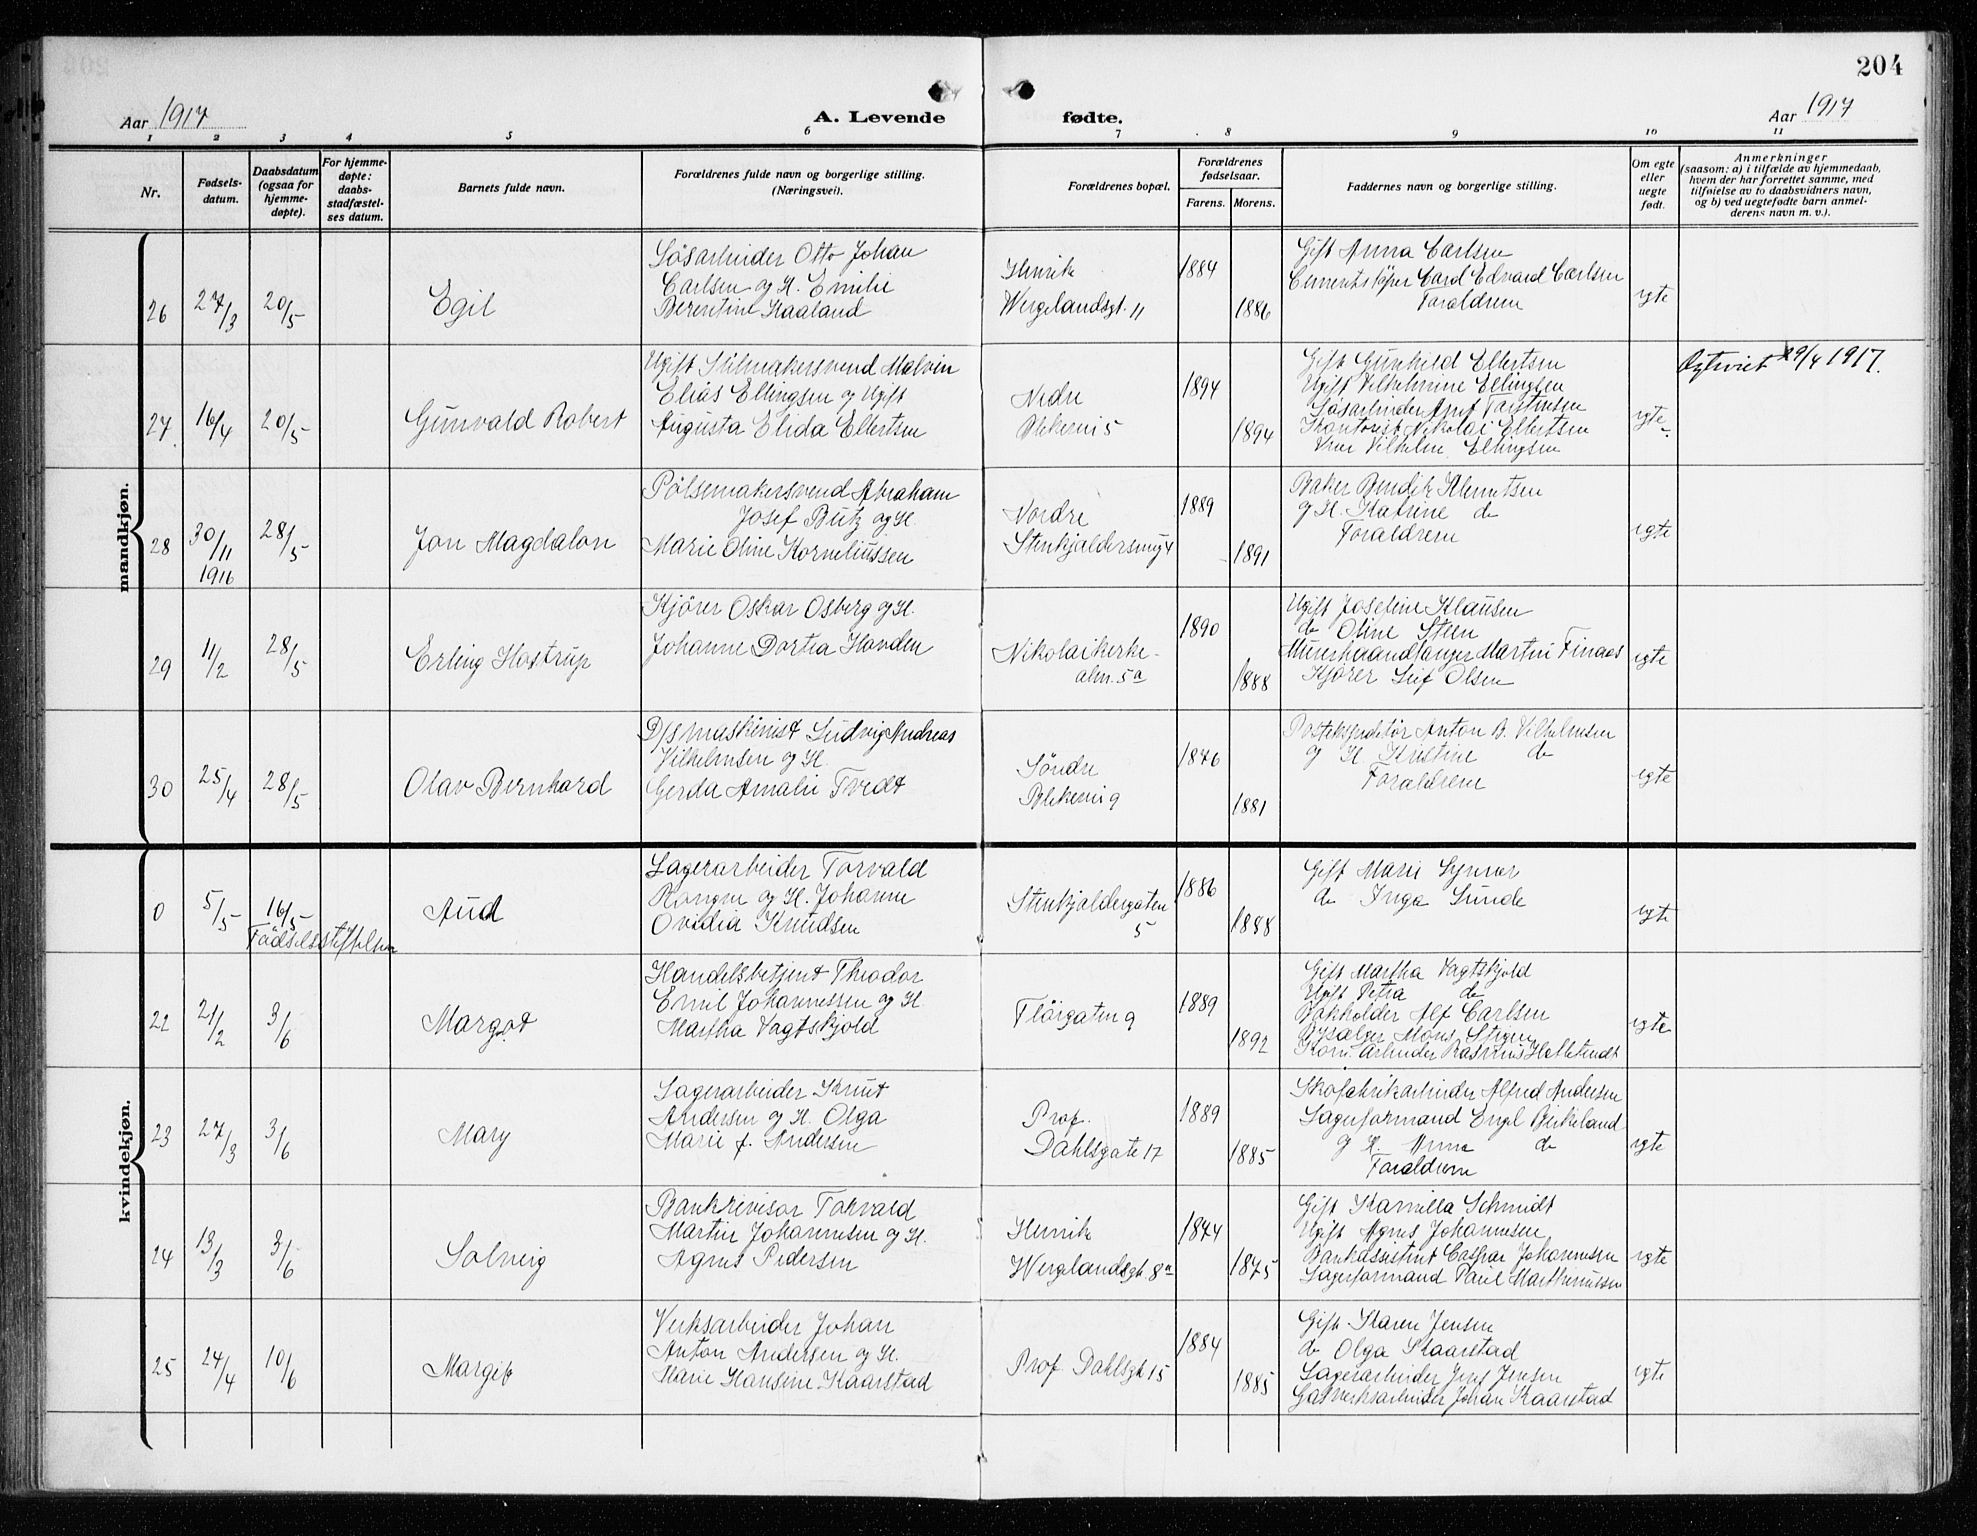 204
Aar 1917
A. Levende fødte.
Aar 1917
1 2 3 4 5 6 7 8 9 10 11
Nr.
Fødsels-
datum.
Daabsdatum
(ogsaa for
hjemme-
døpte).
For hjemme-
døpte:
daabs-
stadfæstel-
ses datum.
Barnets fulde navn.
Forældrenes fulde navn og borgerlige stilling.
(Næringsvei).
Forældrenes bopæl.
Forældrenes
fødselsaar.
Farens. Morens.
Faddernes navn og borgerlige stilling.
Om egte
eller
uegte
født.
Anmerkninger
(saasom: a) i tilfælde av hjemmedaab,
hvem der har forrettet samme, med
tilføielse av to daabsvidners navn,
og b) ved uegtefødte barn anmel-
derens navn m. v.).
mandkjøn.
26
27/3
20/5
Egil
Løsarbeider Otto Johan
Carlsen og H. Emilie
Berentine Kaaland
Henrik
Wergelandsgt. 11
1884
1886
Gift Anna Carlsen
Cementstøper Card Edvard Carlsen
Forældrene
egte
27
16/4
20/5
Gunvald Robert
Ugift Sølmakersvend Malvin
Elias Ellingsen og Ugift
Augusta Elida Ellertsen
Nedre
Blekevei 5
1894
1894
Gift Gunhild Ellertsen
Ugift Vilhelmine Ellingsen
Løsarbeider Torstensen
Kontorist Nikolai Ellertsen
Vilhelm Ellingsen
egte
Egteviet 29/4 1917.
28
30/11
1916
28/5
Jon Magdalon
Pølsemakersvend Abraham
Josef Butz og H.
Marie Oline Korneliussen
Nordre
Stenkjeldersmug 4
1889
1891
Baker Bendik Klemetsen
og H. Katrine do
Forældrene
egte
29
11/2
28/5
Erling Hostrup
Kjører Oskar Osberg og H.
Johanne Dortea Hovden
Nikolaikirke-
alm. 5a
1890
1888
Ugift Josefine Klausen
do Oline Steen
Murerhaandlanger Martin Finaas
Kjører Leif Olsen
egte
30
25/4
28/5
Olav Bernhard
D/S maskinist Ludvig Andreas
Vilhelmsen og H.
Gerda Amalie Tvedt
Søndre
Blekevei 9
1876
1881
Postekspeditør Anton B. Vilhelmsen
og H. Kristine do
Forældrene
egte
kvindekjøn.
0
5/5
16/5
Fødselsstiftelsen
Aud
Lagerarbeider Torvald
Rongve og H. Johanne
Ovidia Knudsen
Stenkjeldergaten
5
1886
1888
Gift Marie
do Inga Sunde
egte
22
21/2
3/6
Margot
Handelsbetjent Theodor
Emil Johannessen og H.
Martha Vagtskjold
Fløigaten 9
1889
1892
Gift Martha Vagtskjold
Ugift Petra do
Bokholder Alf Carlsen
Mons Stigen
Kom. Arbeider Rasmus
egte
23
27/3
3/6
Mary
Lagerarbeider Knut
Andersen og H. Olga
Marie f. Andersen
Prof.
Dahlsgate 17
1889
1885
Skofabrikarbeider Alfred Andersen
Lagerformand Engel Birkeland
og H. Anna do
Forældrene
egte
24
13/3
3/6
Solveig
Bankrevisor Torvald
Martin Johannesen og H.
Agnes Pedersen
Henrik
Wergelandsgt. 8a
1874
1875
Gift Kamilla Schmidt
Ugift Agnes Johannesen
Bankassistent Caspar Johannesen
Lagerformand Paul Marthinussen
egte
25
24/4
10/6
Margit
Verksarbeider Johan
Anton Andersen og H.
Marie Hansine Kaarstad
Prof Dahlsgt 15
1884
1885
Gift Karen Jensen
do Olga Kaarstad
Lagerarbeider Jens Jensen
Gasverksarbeider Johan Kaarstad
egte